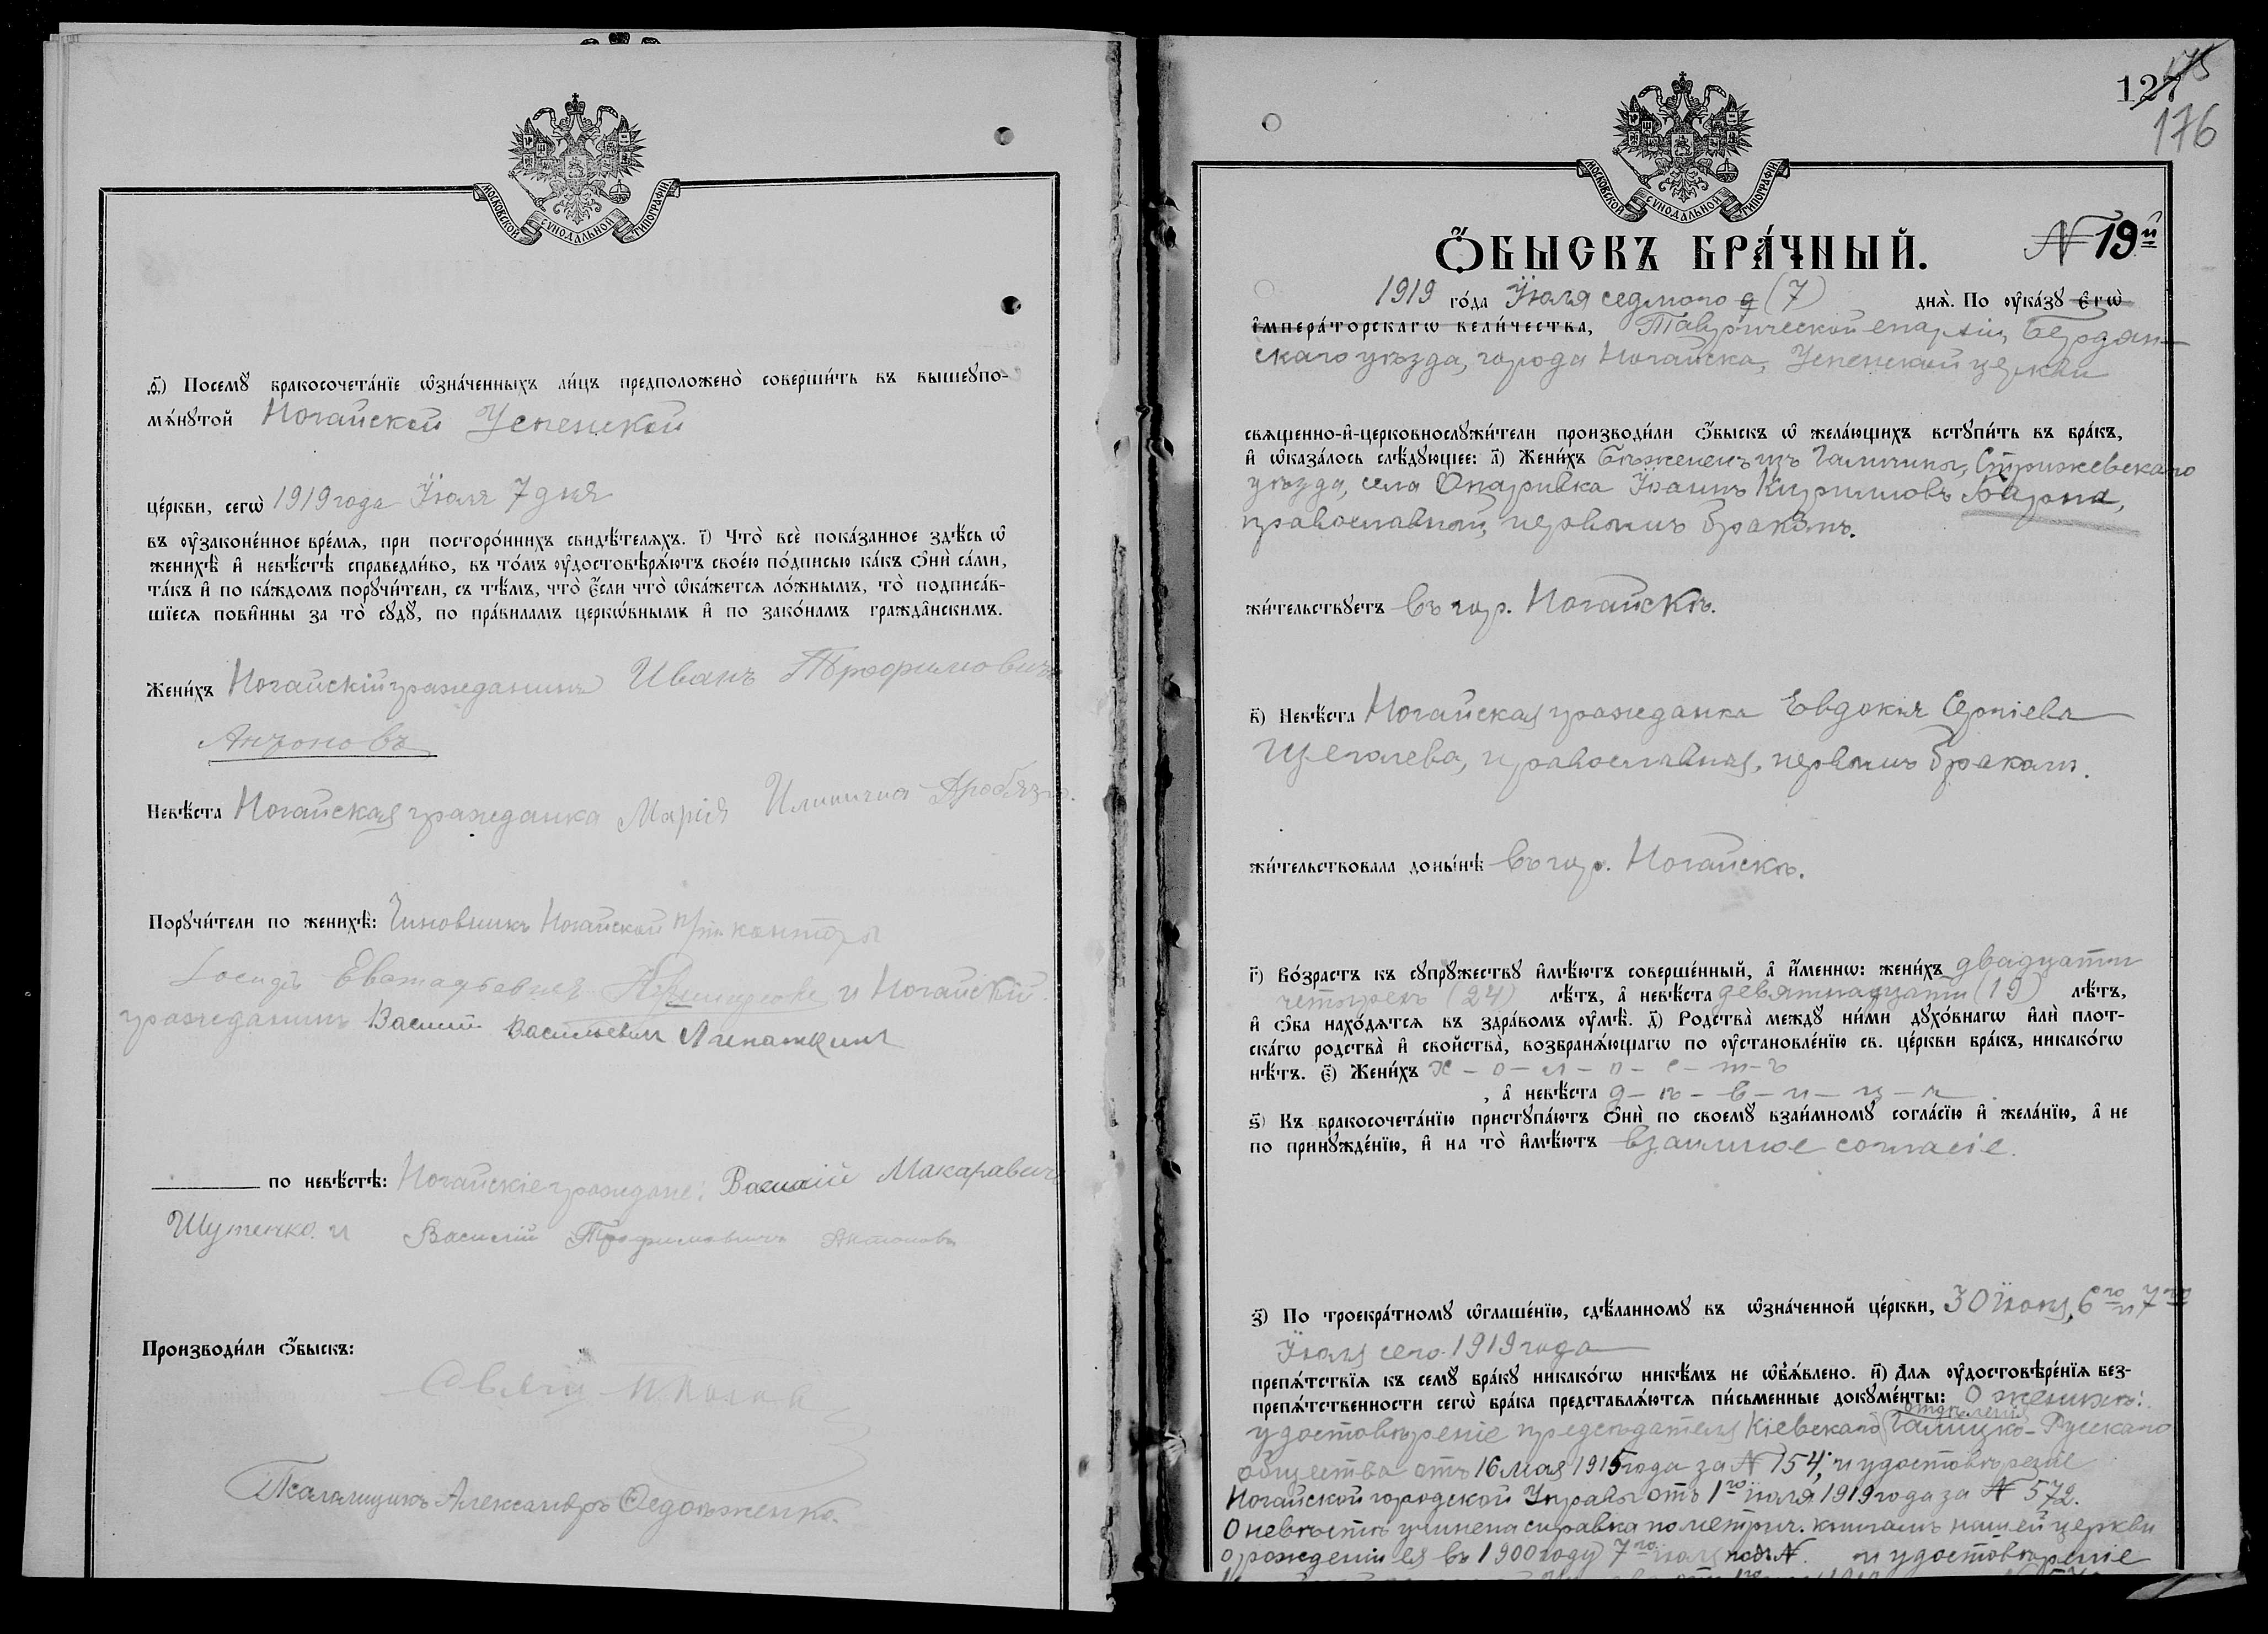 МОСКОВСКОЙ СѴНОДАЛЬНОЙ ТИПОГРАФІИ
ѳ҃) Посемꙋ бракосочета́нїе ѡ҆зна́ченныхъ ли́цъ предположено̀ соверши́ть въ вышеꙋпо-
мѧ́нꙋтой Ногайской Успенской
це́ркви, сегѡ̀ 1919 года Іюля 7 дня
въ ᲂу҆законе́нное вре́мѧ, при посторо́ннихъ свидѣ́телѧхъ. і҃) Что̀ всѐ пока́занное здѣ́сь ѡ҆
женихѣ̀ и҆ невѣ́стѣ справедли́во, въ то́мъ ᲂу҆достовѣрѧ́ютъ свое́ю по́дписью ка́къ ѻ҆нѝ са́ми,
та́къ и҆ по ка́ждомъ порꙋчи́тели, съ тѣ́мъ, что̀ є҆́сли что̀ ѡ҆ка́жетсѧ ло́жнымъ, то̀ подписа́в-
шїесѧ пови́нны за то̀ сꙋдꙋ̀, по пра́виламъ церкѡ́внымъ и҆ по зако́намъ гражда́нскимъ.
Жени́хъ Ногайскій гражданинъ Иванъ Трофимовичъ
Антоновъ
Невѣ́ста Ногайская гражданка Марія Илинична Дробязго.
Порꙋчи́тели по женихѣ̀: Чиновникъ Ногайской п/т. конторы
Іосифъ и Ногайскій
гражданинъ Василій Васильевич
по невѣ́стѣ: Ногайскіе граждане: Василій Макаравич
Шутенко. и Василій Трофимовичъ Антоновъ
Производи́ли ѻ҆́быскъ:
Свящ.
Псаломщикъ Александръ Ѳедоженко.
127 175
176
МОСКОВСКОЙ СѴНОДАЛЬНОЙ ТИПОГРАФІИ
Ѻ҆́БЫСКЪ БРА́ЧНЫЙ. № 19й
1919 го́да Іюля седмого д (7) днѧ̀. По ᲂу҆ка́зꙋ є҆гѡ̀
и҆мпера́торскагѡ вели́чества, Таврической епархіи, Бердян-
скаго уѣзда, города Ногайска, Успенской церкви
свѧщенно-и҆-церковнослꙋжи́тели производи́ли ѻ҆́быскъ ѡ҆ жела́ющихъ встꙋпи́ть въ бра́къ,
и҆ ѡ҆каза́лось слѣ́дꙋющее: а҃) Жени́хъ бѣженецъ изъ Галичины, Стрижевскаго
уѣзда, села Опаривка Іоаннъ Кирилловъ Барна,
православный, первымъ бракомъ.
жи́тельствꙋетъ въ гор. Ногайскѣ.
в҃) Невѣ́ста Ногайская гражданка Евдокія Сергіева
Щеголева, православная, первымъ бракомъ.
жи́тельствовала доны́нѣ въ гор. Ногайскѣ.
г҃) Во́зрастъ къ сꙋпрꙋ́жествꙋ и҆мѣ́ютъ соверше́нный, а҆ и҆́меннѡ: жени́хъ двадцати
четырехъ (24) лѣ́тъ, а҆ невѣ́ста девятнадцати (19) лѣ́тъ,
и҆ ѻ҆́ба нахо́дѧтсѧ въ здра́вомъ ᲂу҆мѣ̀. д҃) Родства̀ междꙋ̀ ни́ми дꙋхо́внагѡ и҆лѝ плот-
ска́гѡ родства̀ и҆ сво́йства̀, возбранѧ́ющагѡ по ᲂу҆становле́нїю св. це́ркви бра́къ, никако́гѡ
нѣ́тъ. є҃) Жени́хъ х-о-л-о-с-т-ъ
, а҆ невѣ́ста д-ѣ-в-и-ц-а.
ѕ҃) Къ бракосочета́нїю пристꙋпа́ютъ ѻ҆нѝ по своемꙋ̀ взаи́мномꙋ согла́сїю и҆ жела́нїю, а҆ не
по принꙋжде́нїю, и҆ на то̀ и҆мѣ́ютъ взаимное согласіе.
з҃) По троекра́тномꙋ ѡ҆глаше́нїю, сдѣ́ланномꙋ въ ѡ҆зна́ченной це́ркви, 30 Іюня, 6го и 7го
Іюля сего 1919 года
препѧ́тствїѧ къ семꙋ̀ бра́кꙋ никако́гѡ никѣ́мъ не ѡ҆б̾ѧ́влено. и҃) Длѧ ᲂу҆достовѣре́нїѧ без-
препѧ́тственности сегѡ̀ бра́ка представлѧ́ютсѧ пи́сьменные докꙋме́нты: О женихѣ:
удостовѣреніе предсѣдателя Кіевскаго отдѣленія Галицко-Русскаго
общества отъ 16 мая 1915 года за № 154; и удостовѣреніе
Ногайской городской Управы отъ 1го іюля 1919 года за № 572.
О невѣстѣ учинена справка по метрич. книгамъ нашей церкви
о рожденіи ея въ 1900 году 7го іюля подъ № и удостовѣреніе